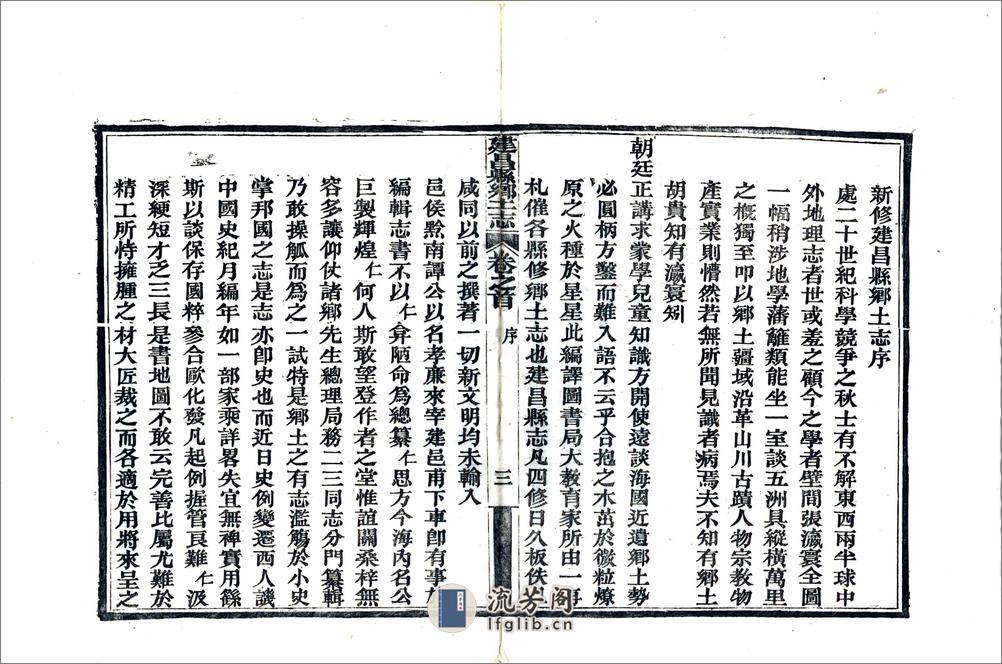 新修建昌縣鄉土志序
處二十世紀科學競爭之秋士有不解東西兩半球中
外地理志者世或羞之顧今之學者壁間張瀛寰全圖
一幅稍涉地學藩籬類能坐一室談五洲具縱橫萬里
之概獨至叩以鄉土疆域沿革山川古蹟人物宗教物
產實業則懵然若無所聞見識者病焉夫不知有鄉土
胡貴知有瀛寰矧
朝廷正講求蒙學兒童知識方開使遠談海國近遺鄉土勢
必圓柄方鑿而難入語不云乎合抱之木茁於微粒燎
原之火種於星星此編譯圖書局大教育家所由一再
札催各縣修鄉土志也建昌縣志凡四修日久板佚
建昌縣鄉土志 卷之首 序 三
咸同以前之撰著一切新文明均未輸入
邑侯黔南譚公以名孝廉來宰建邑甫下車即有事於
編輯志書不以仁弇陋命為總纂仁思方今海內名公
巨製輝煌仁何人斯敢望登作者之堂惟誼關桑梓無
容多讓仰仗諸鄉先生總理局務二三同志分門纂輯
乃敢操觚而為之一試特是鄉土之有志濫觴於小史
掌邦國之志是志亦即史也而近日史例變遷西人譏
中國史紀月編年如一部家乘詳畧失宜無裨實用緣
斯以談保存國粹參合歐化發凡起例握管良難仁汲
深綆短才乏三長是書地圖不敢云完善比屬尤難於
精工所恃擁腫之材大匠裁之而各適於用將來呈之
流芳阁
lfglib.cn